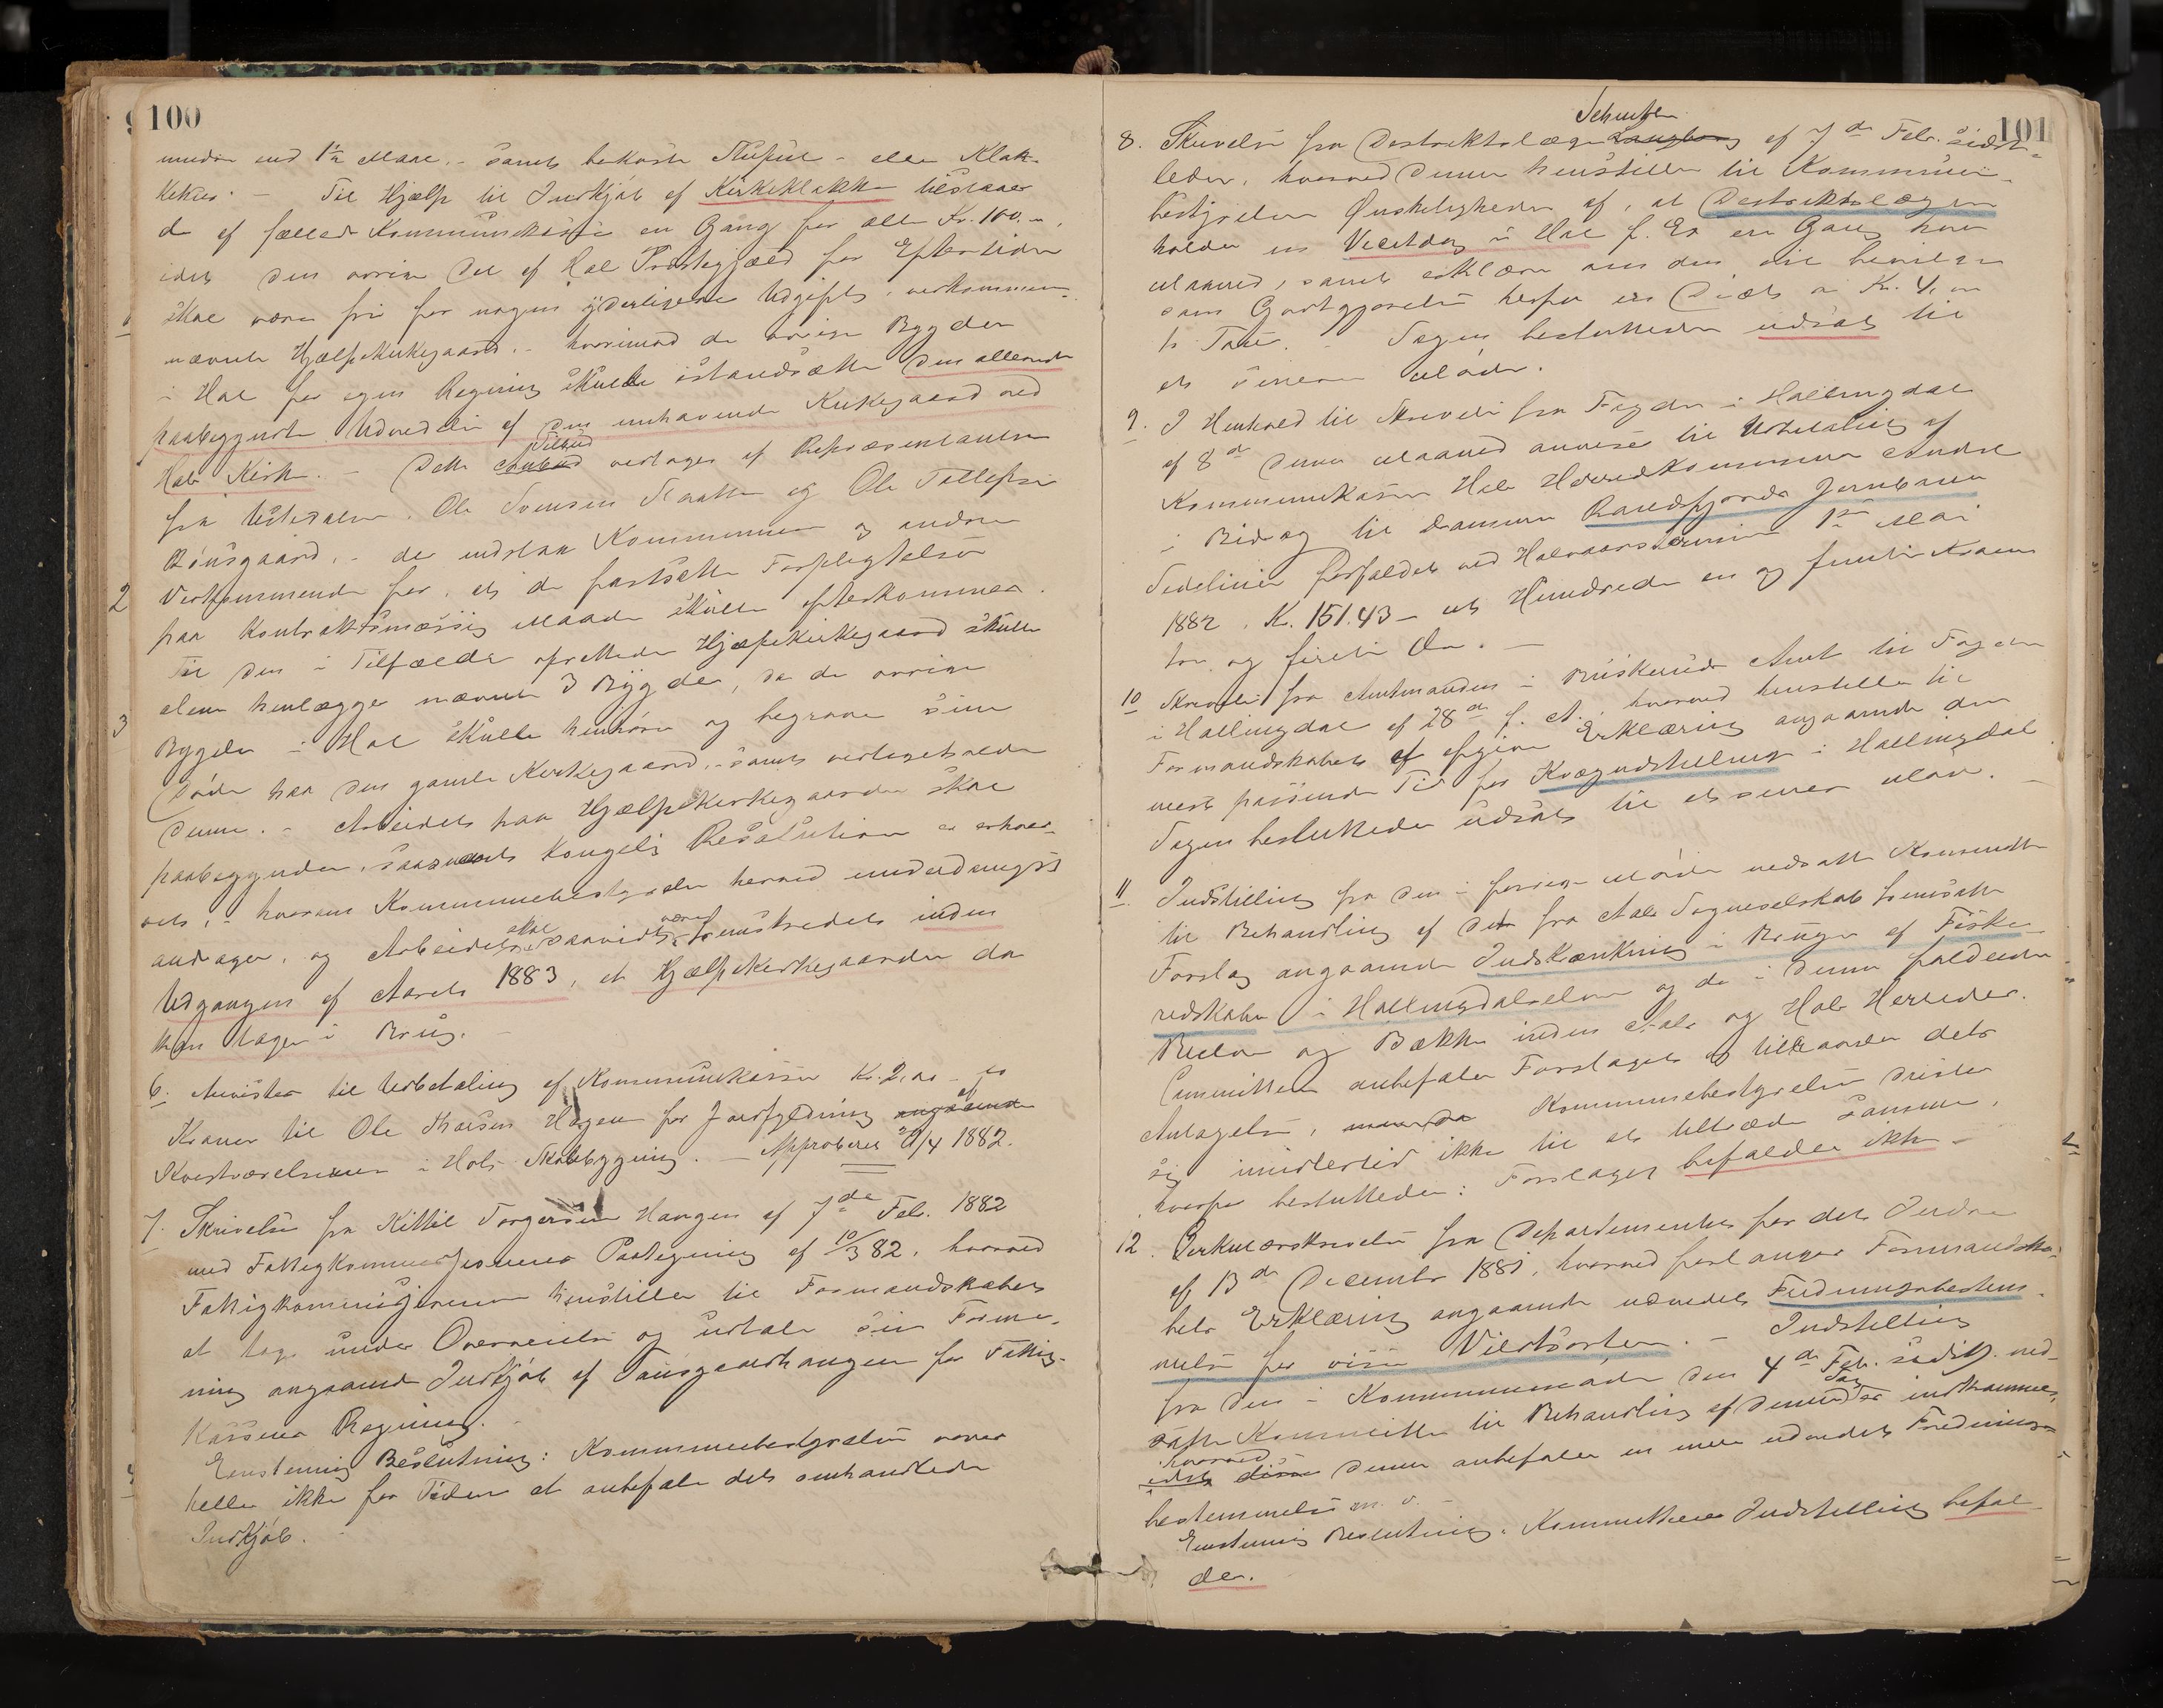 100
mindre end 1½ Maal, - samt bekoste Støpul - eller Klok-
kehus. - Til Hjælp til Indkjøb af Kirkeklokke tilstaaes
de af fælleds Kommunekasse en Gang for alle Kr. 100,
idet den øvrige Del af Hol Præstegjæld for Eftertiden
skal være fri for nogen yderligere Udgifts, vedkommende
nævnte Hjælpekirkegaard, - hvorimod de øvrige Bygder
i Hol for egen Regning skulde istandsætte den allerede
paabegyndte Udvidelse af den omhavende Kirkegaard ved
Hols Kirke. - Dette Anbud Tilbud vedtages af Repræsentanterne
fra Ustedalen, Ole Svensen Raaen og Ole Tollefsen
Bønsgaard, - der indstaa Kommunen og andre
Vedkommende for, at de fastsatte Forpligtelser
paa kontraktsmæssig Maade skulle efterkommes.
Til den i Tilfælde oprettede Hjælpekirkegaard skulle
alene henlægges nævnte 3 Bygder, da de øvrige
Bygder i Hol skulle henhøre og begrave sine
Døde paa den gamle Kirkegaard, - samt vedligeholde
denne. - Arbeidet paa Hjælpekirkegaarden skal
paabegyndes, saasnart Kongelig Resolution er erhver-
vet, - hvorom Kommunebestyrelsen herved underdanigst
andrager, og Arbeidet skal saavidt være fremskredet inden
Udgangen af Aaret 1883, at Hjælpekirkegaarden da
kan tages i Brug.
6. Anvistes til Udbetaling af Kommunekassen Kr. 2,00 - to
Kroner til Ole Larsen Hagen for Jordfyldning angaaende af
Kvistværelserne i Hols Skolebygning. - Approberes 21/4 1882.
7. Skrivelse fra Kittil Torgersen Haugen af 7de Feb. 1882
med Fattigkommissionens Paategning af 10/3 82, hvorved
Fattigkommissionen henstiller til Formandskabet
at tage under Overveielse og udtale sin Forme-
ning angaaende Indkjøb af Tausgaardhaugen for Fattig-
kassens Regning.
Enstemmig Beslutning: Kommunebestyrelsen vover
heller ikke for Tiden at anbefale det omhandlede
Indkjøb.
101
8. Skrivelse fra Destriktslæge Schwften af 7de Febr. sidst-
leden, hvorved denne henstiller til Kommune-
bestyrelsen Ønskeligheden af, at Destriktslægen
holder en Visitdag i Hol f. Ex en Gang hver
Maaned, samt erklære om den vil bevilge
som Godtgjørelse herfor en Diæt a Kr. 4,00
pr Tour. - Sagen besluttedes udsat til
et senere Møde.
9. I Henhold til Skrivelse fra Fogden i Hallingdal
af 8de denne Maaned anvises til Udbetaling af
Kommunekassen Hols Herredkommunes Andel
i Bidrag til Drammen Randsfjords Jernbanes
Sidelinier forfaldet ved Halvaarsterminen 1ste Mai
1882, Kr. 151.43 - et Hundrede en og femti Kroner
tre og firti Øre. -
10 Skrivelse fra Amtmanden i Buskeruds Amt til Fogden
i Hallingdal af 28de f. M., hvorved henstilles til
Formandskabet at afgive Erklæring angaaende den
mest passende Tid for Kvægudstilling i Hallingdal.
Sagen besluttedes udsat til et senere Møde. -
11. Indstilling fra den i forrige Møde nedsatte Komite
til Behandling af det fra Aals Sogneselskab fremsatte
Forslag angaaende Indskrænkning i Brugen af Fiske-
redskaber i Hallingdalselven og de i denne faldende
Bielve og Bække inden Aals og Hols Herreder.
Committeen anbefaler Forslaget til tilraader dets
Antagelse, men da Kommunebestyrelsen drister
sig imidlertid ikke til at tiltræde samme,
hvorfor besluttedes: Forslaget befaldes ikke. -
12. Cirkulærskrivelse fra Departementet for det Indre
af 13de December 1881, hvorved forlanges Formandska-
bets Erklæring angaaende udvidet Fredningsbestem-
melse for visse Vildtsorter. - Indstilling
fra den i Kommunemøde den 4de Feb. sidstl. ned-
satte Kommitte til Behandling af denne Sag er indkommet,
idet disse hvorved denne anbefaler en mere udvidet Frednings-
bestemmelse m. v. -
Enstemmig Beslutning: Kommitteens Indstilling befal-
des.